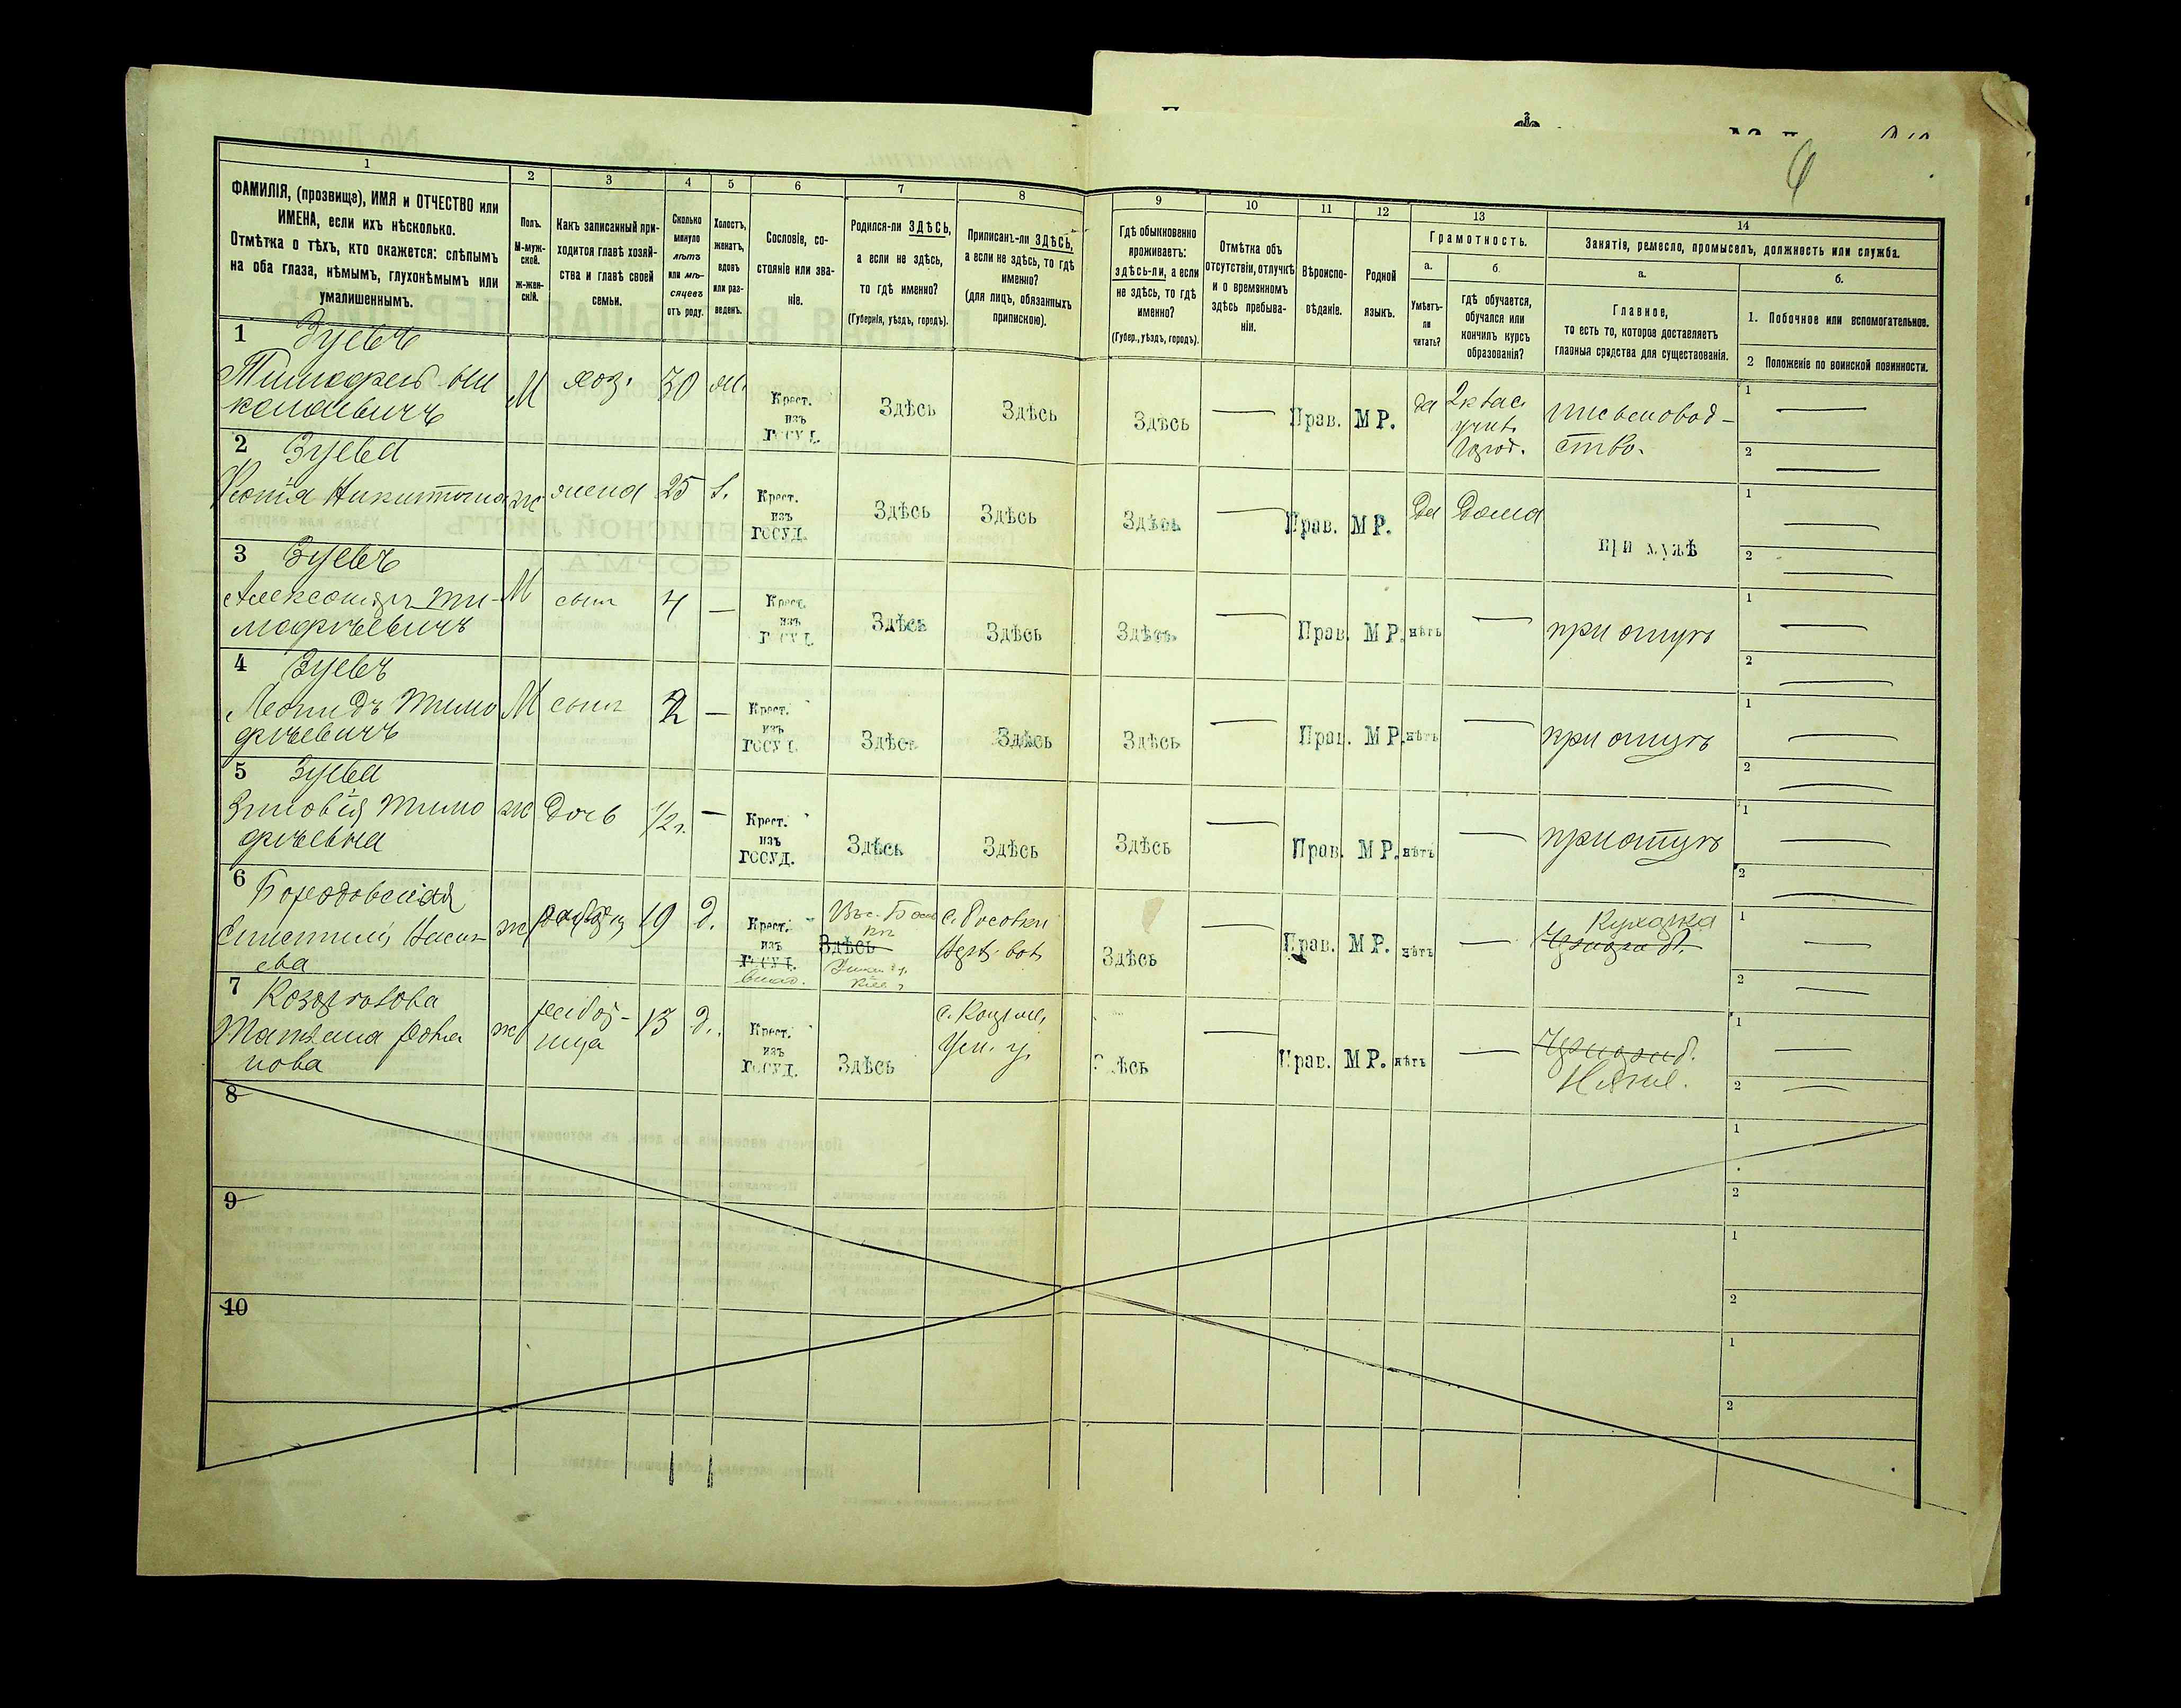 1
2
3
4
5
6
7
8
9
10
11
12
13
14
ФАМИЛІЯ, (прозвище), ИМЯ и ОТЧЕСТВО или
ИМЕНА, если ихъ нѣсколько.
Отмѣтка о тѣхъ, кто окажется: слѣпымъ
на оба глаза, нѣмымъ, глухонѣмымъ или
умалишеннымъ.
Полъ.
М-муж-
ской.
ж-жен-
скій.
Какъ записанный при-
ходится главѣ хозяй-
ства и главѣ своей
семьи.
Сколько
минуло
лѣтъ
или мѣ-
сяцевъ
отъ роду.
Холостъ,
женатъ,
вдовъ
или раз-
веденъ.
Сословіе, со-
стояніе или зва-
ніе.
Родился-ли ЗДѢСЬ,
а если не здѣсь,
то гдѣ именно?
(Губернія, уѣздъ, городъ).
Приписанъ-ли ЗДѢСЬ,
а если не здѣсь, то гдѣ
именно?
(для лицъ, обязанныхъ
припискою).
Гдѣ обыкновенно
проживаетъ:
здѣсь-ли, а если
не здѣсь, то гдѣ
именно?
(Губер., уѣздъ, городъ).
Отмѣтка объ
отсутствіи, отлучкѣ
и о временномъ
здѣсь пребыва-
ніи.
Вѣроиспо-
вѣданіе.
Родной
языкъ.
Грамотность.
а.
Умѣетъ-
ли
читать?
б.
гдѣ обучается,
обучался или
кончилъ курсъ
образованія?
Занятія, ремесло, промыселъ, должность или служба.
а.
Главное,
то есть то, которое доставляетъ
главныя средства для существованія.
б.
1. Побочное или вспомогательное.
2 Положеніе по воинской повинности.
1 Зуевъ
Тимофей Ни
колаевичъ
М
хоз.
30
ж.
Крест.
изъ
ГОСУД.
Здѣсь
Здѣсь
Здѣсь
Прав.
М Р.
да
2 клас.
учил.
Город.
письмовод-
ство.
1
2
2 Зуева
Никитична
ж
жена
25
Крест.
изъ
ГОСУД.
Здѣсь
Здѣсь
Здѣсь
Прав.
М Р.
Да
Дома
при мужѣ
1
2
3 Зуевъ
Александръ Ти-
мофѣевичъ
М
сынъ
4
Крест.
изъ
ГОСУД.
Здѣсь
Здѣсь
Здѣсь
Прав.
М Р.
нѣтъ
при отцѣ
1
2
4 Зуевъ
Леонидъ Тимо
фѣевичъ
М
сынъ
2
Крест.
изъ
ГОСУД.
Здѣсь
Здѣсь
Здѣсь
Прав.
М Р.
нѣтъ
при отцѣ
1
2
5 Зуева
Зиновія Тимо
фѣевна
ж
дочь
1/2 г.
Крест.
изъ
ГОСУД.
Здѣсь
Здѣсь
Здѣсь
Прав.
М Р.
нѣтъ
при отцѣ
1
2
6
ж
19
д.
Крест.
изъ
ГОСУД.
Здѣсь
Здѣсь
Прав.
М Р.
нѣтъ
Кухарка
1
2
7
ж
13
д.
Крест.
изъ
ГОСУД.
Здѣсь
Здѣсь
Прав.
М Р.
нѣтъ
Няня.
1
2
8
1
2
9
1
2
10
1
2